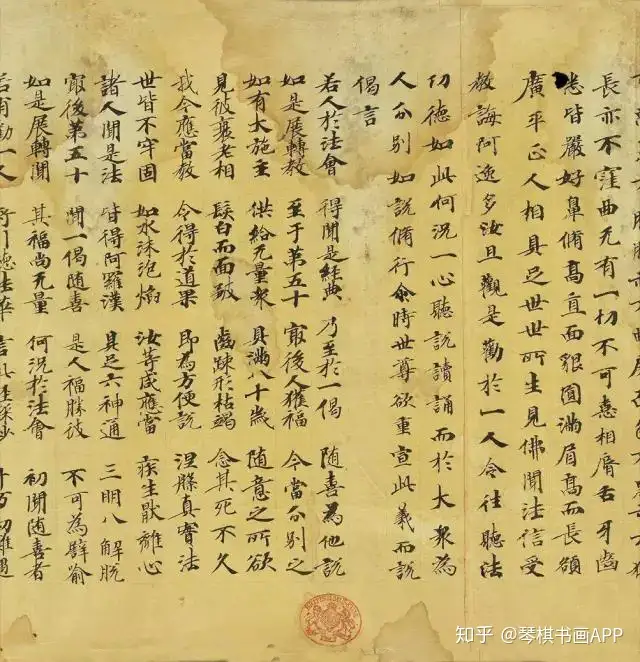 長亦不窪曲无有一切不可憙相脣舌牙齒
悉皆嚴好鼻脩髙直面貌圓滿眉髙而長額
廣平正人相具足世世所生見佛聞法信受
教誨阿逸多汝且觀是勸於一人令往聽法
功德如此何況一心聽說讀誦而於大衆為
人分別如說脩行尒時世尊欲重宣此義而說
偈言
若人於法會 得聞是經典 乃至於一偈 隨喜為他說
如是展轉教 至于第五十 冣後人獲福 今當分別之
如有大施主 供給无量衆 具滿八十歲 隨意之所欲
見彼衰老相 髮白而面皺 齒踈形枯竭 念其死不久
我今應當教 令得於道果 即為方便說 涅槃真實法
世皆不牢固 如水沫泡焰 汝等咸應當 疾生猒離心
諸人聞是法 皆得阿羅漢 具足六神通 三明八解脫
冣後第五十 聞一偈隨喜 是人福勝彼 不可為譬喻
如是展轉聞 其福尚无量 何況於法會 初聞隨喜者
知乎 @琴棋书画APP